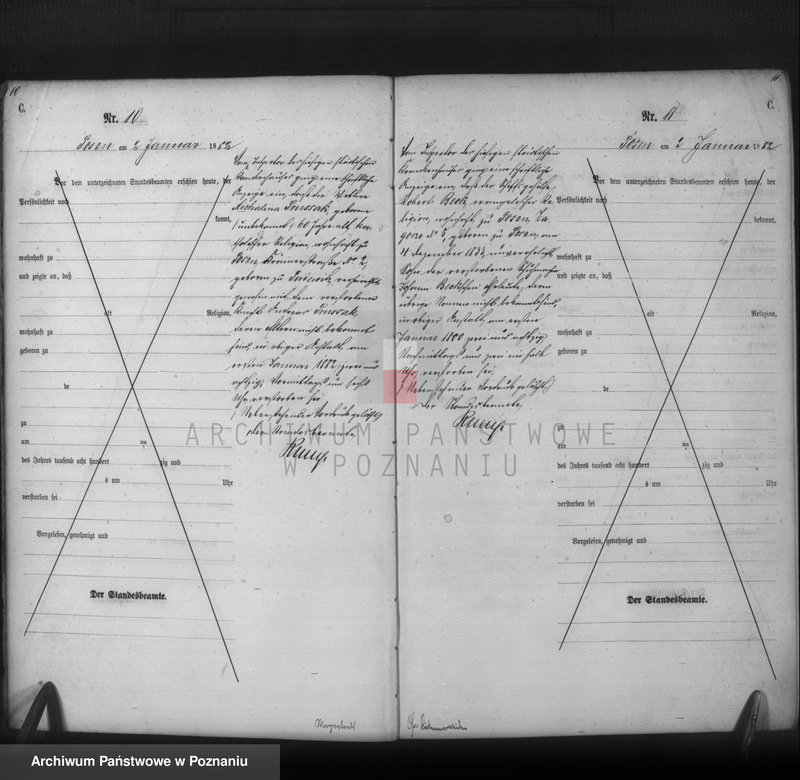 10
C.
Nr. 10
Posen am 2 Januar 1882
Vor dem unterzeichneten Standesbeamten erschien heute, der
Persönlichkeit nach
kannt,
wohnhaft zu
und zeigte an, daß
alt Religion,
wohnhaft zu
geboren zu
de
zu
am ten
des Jahres tausend acht hundert zig und
s um Uhr
verstorben sei
Vorgelesen, genehmigt und
Der Standesbeamte.
Vom Inspector des hiesigen städtischen
Krankenhauses ging eine schriftliche
Anzeige ein, daß die Wittwe
Michalina Prussak, geborene
unbekannt, 60 Jahre alt, ka-
tholischer Religion, wohnhaft zu
Posen,
geboren zu
dem verstorbenen
Andreas Prussak,
deren Eltern nicht bekannt
sind, in obiger Anstalt, am
ersten Januar 1882 zwei und
achtzig Vormittags um sechs
Uhr verstorben sei.
Nebenstehender Vordruck gelöscht.
Der Standesbeamte.
11
C.
Nr. 11
Posen am 2 Januar 1882
Vor dem unterzeichneten Standesbeamten erschien heute, der
Persönlichkeit nach
bekannt,
wohnhaft zu
und zeigte an, daß
alt Religion,
wohnhaft zu
geboren zu
de
zu
am ten
des Jahres tausend acht hundert zig und
s um Uhr
verstorben sei
Vorgelesen, genehmigt und
Der Standesbeamte.
Vom Inspector des hiesigen städtischen
Krankenhauses ging eine schriftliche
Anzeige ein, daß der
Robert Beck, evangelischer Re-
ligion, wohnhaft zu Posen, Za-
gorze No 5, geboren zu Posen, am
4 Dezember 1833, unverehelicht,
Sohn der verstorbenen
Johann Beck'schen Eheleute, deren
übrige Namen nicht bekannt sind,
in obiger Anstalt, am ersten
Januar 1800 zwei und achtzig
Nachmittags um zwei ein halb
Uhr verstorben sei.
Nebenstehender Vordruck gelöscht.
Der Standesbeamte.
ARCHIWUM PAŃSTWOWE
W POZNANIU
Archiwum Państwowe w Poznaniu